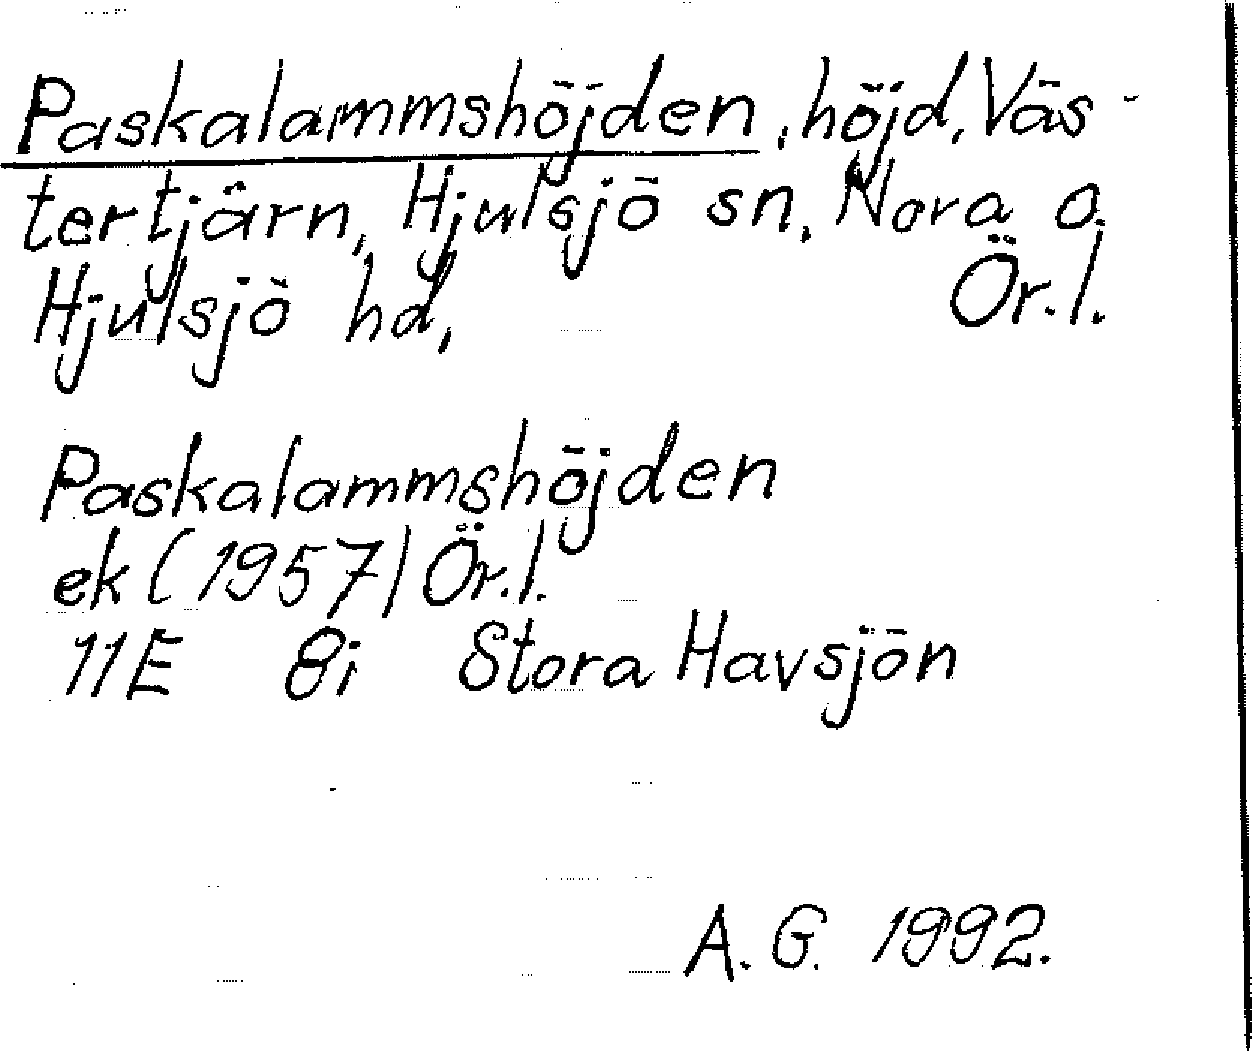 Paskalammshöjden, höjd, Väs-
tertjärn, Hjulsjö sn, Nora o.
Hjulsjö hd, Ör.l.
Paskalammshöjden
ek (1957) Ör.l.
11E 8i Stora Havsjön
A.G. 1992.